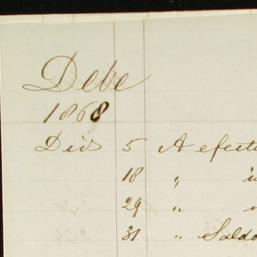 Debe
1868
Dic 5 A efect
18 "
29 "
31 " Saldo